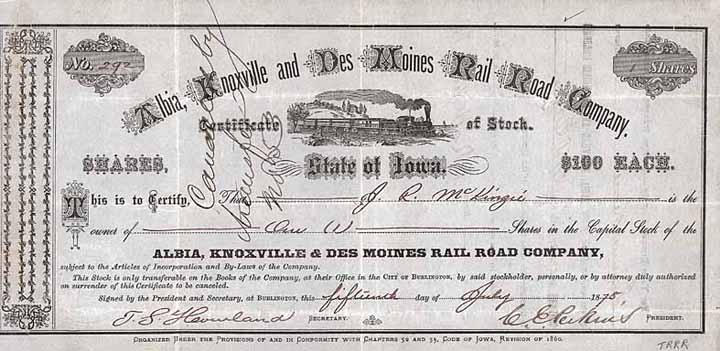 No. 292
1 Shares
Albia, Knoxville and Des Moines Rail Road Company.
Certificate of Stock.
SHARES, State of Iowa. $100 EACH.
Canceled by
Transfer to
No 5
This is to Certify, That J. R. McKingie is the
owner of One (1) Shares in the Capital Stock of the
ALBIA, KNOXVILLE & DES MOINES RAIL ROAD COMPANY,
subject to the Articles of Incorporation and By-Laws of the Company.
This Stock is only transferable on the Books of the Company, at their Office in the CITY OF BURLINGTON, by said stockholder, personally, or by attorney duly authorized
on surrender of this Certificate to be canceled.
Signed by the President and Secretary, at BURLINGTON, this fifteenth day of July 1875,
T. S. Howland SECRETARY. C. E. Perkins PRESIDENT.
ORGANIZED UNDER THE PROVISIONS OF AND IN CONFORMITY WITH CHAPTERS 52 AND 55, CODE OF IOWA, REVISION OF 1860.
TRRR